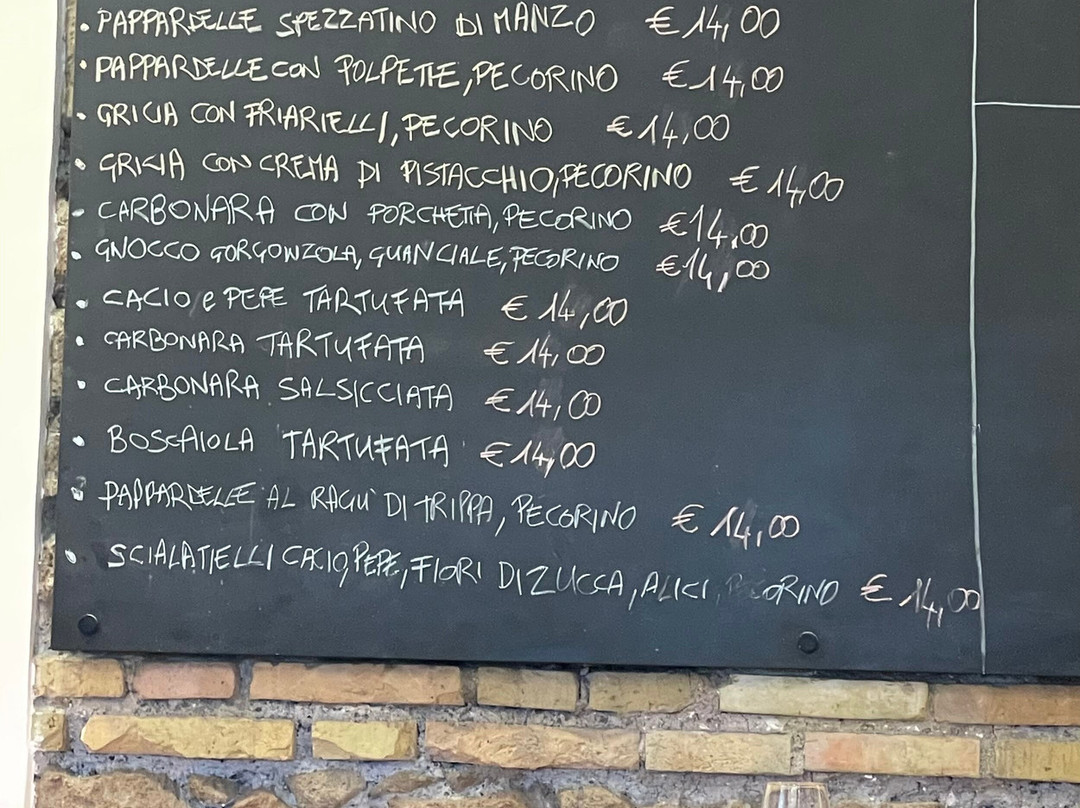 • PAPPARDELLE SPEZZATINO DI MANZO € 14,00
• PAPPARDELLE CON POLPETTE, PECORINO € 14,00
• GRICIA CON FRIARIELLI, PECORINO € 14,00
• GRICIA CON CREMA DI PISTACCHIO, PECORINO € 14,00
• CARBONARA CON PORCHETTA, PECORINO € 14,00
• GNOCCO GORGONZOLA, GUANCIALE, PECORINO € 14,00
• CACIO e PEPE TARTUFATA € 14,00
• CARBONARA TARTUFATA € 14,00
• CARBONARA SALSICCIATA € 14,00
• BOSCAIOLA TARTUFATA € 14,00
• PAPPARDELLE AL RAGU' DI TRIPPA, PECORINO € 14,00
• SCIALATIELLI CACIO, PEPE, FIORI DI ZUCCA, ALICI, PECORINO € 14,00